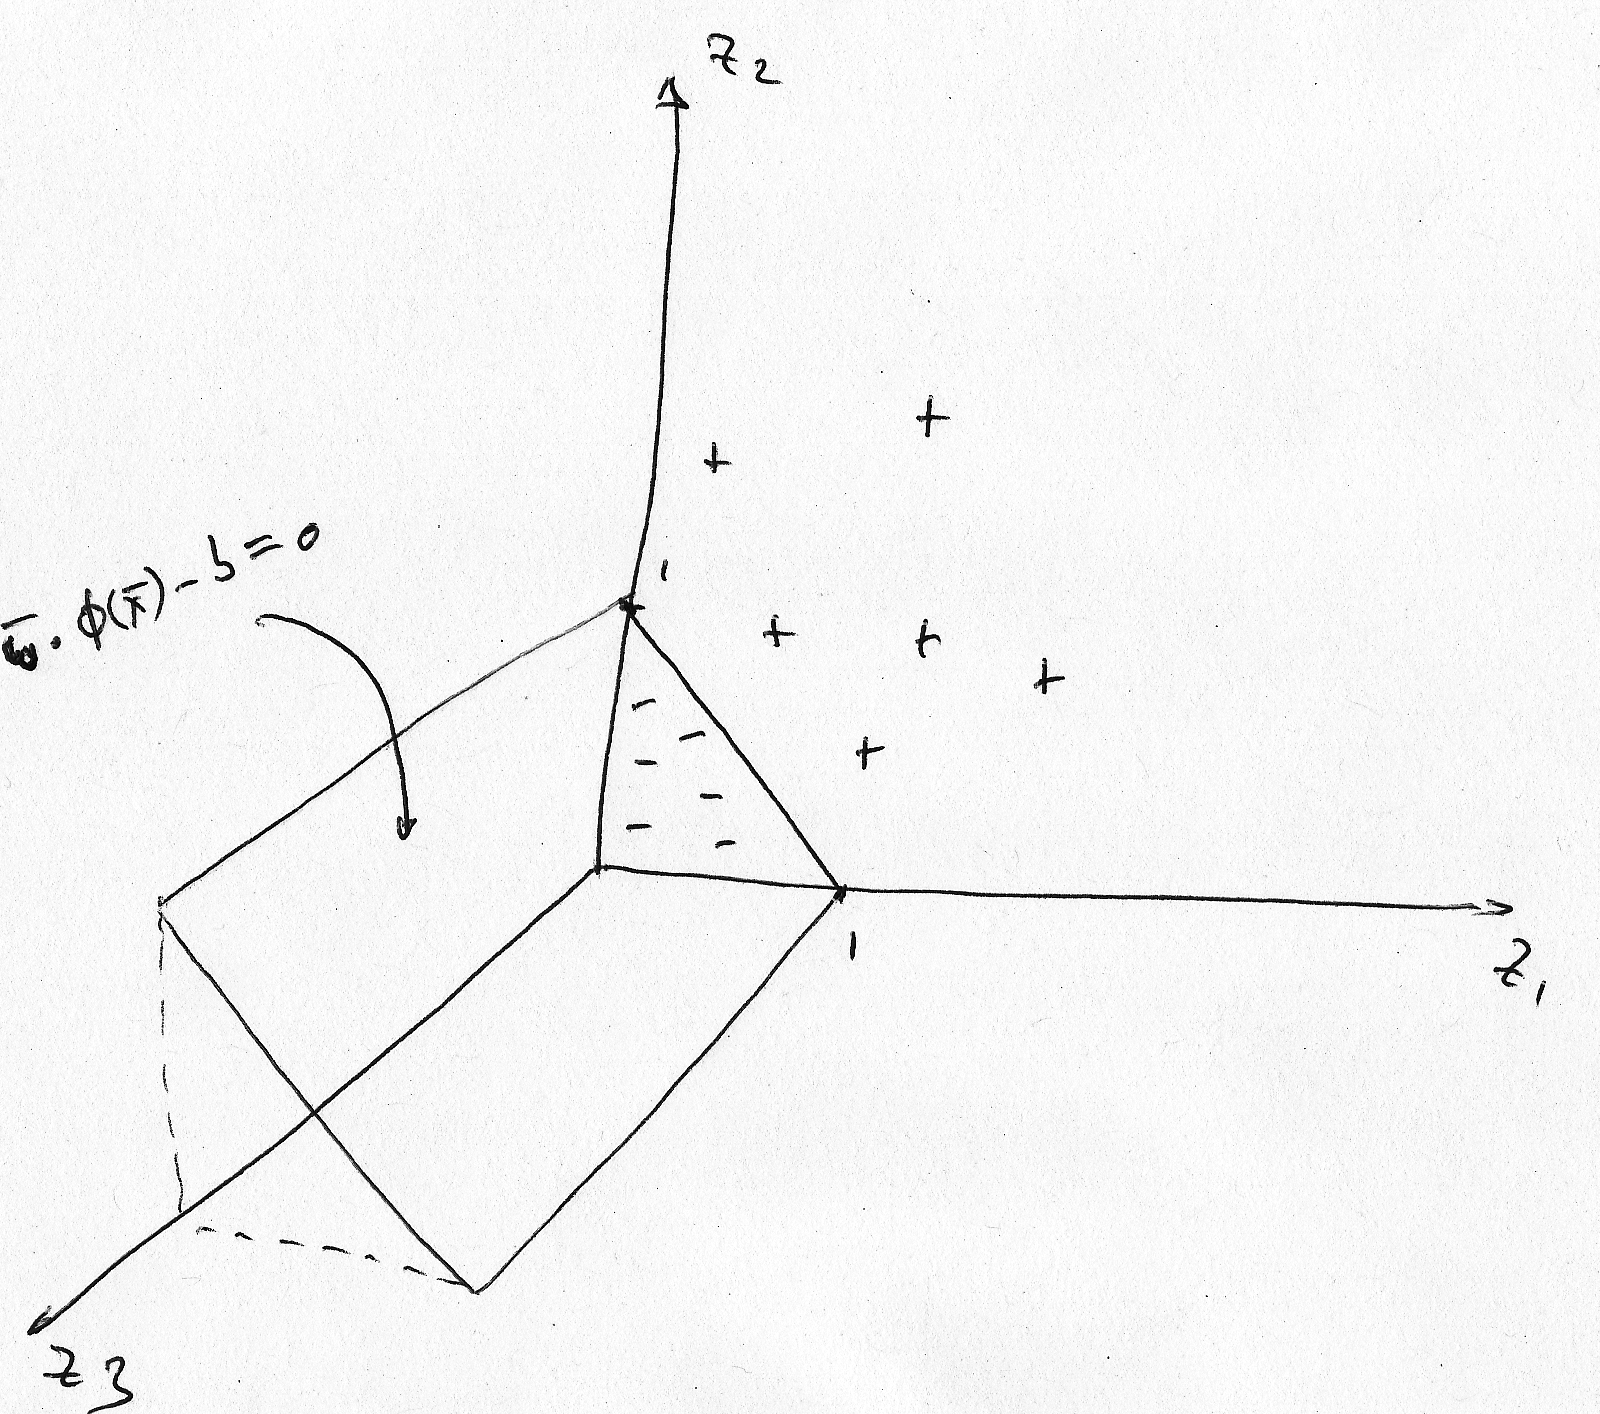 z₂
w̄ · ϕ(x̄) - b = 0
1
+
+
+
+
+
+
-
-
-
-
-
-
1
z₁
z₃